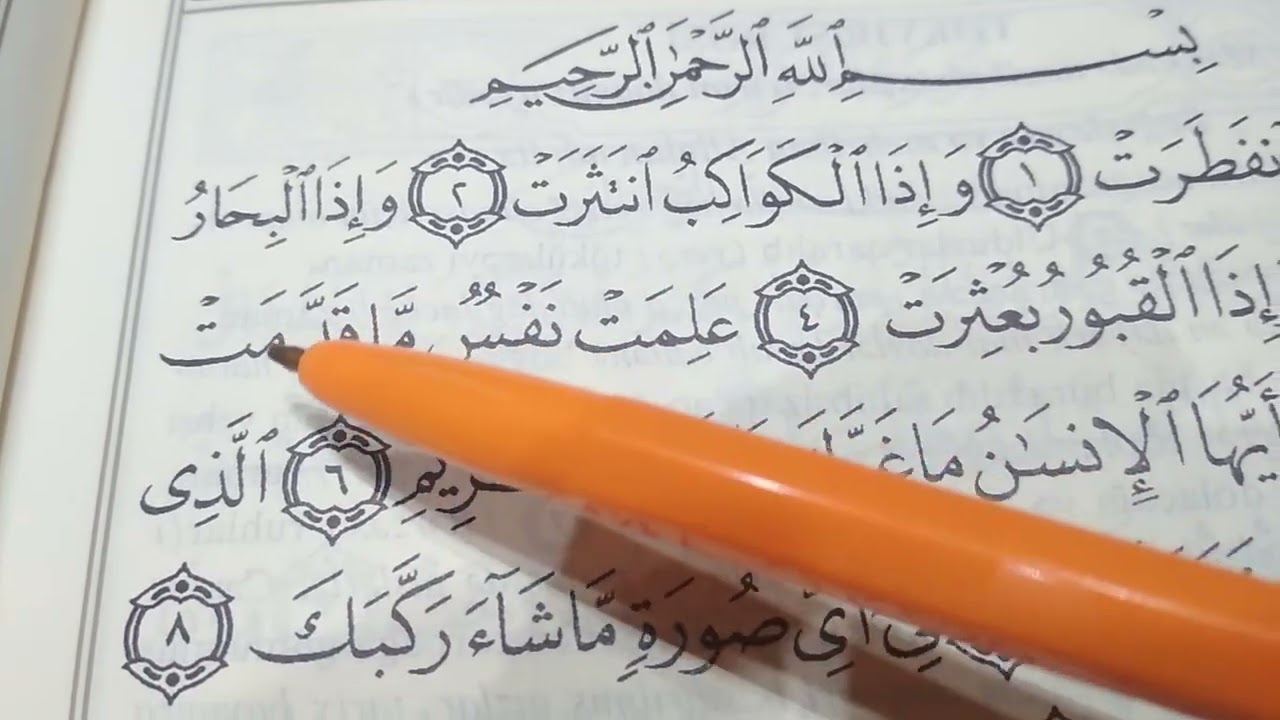 بِسْمِ ٱللَّهِ ٱلرَّحْمَٰنِ ٱلرَّحِيمِ
نفَطَرَتْ ١ وَإِذَا ٱلْكَوَاكِبُ ٱنتَثَرَتْ ٢ وَإِذَا ٱلْبِحَارُ
إِذَا ٱلْقُبُورُ بُعْثِرَتْ ٤ عَلِمَتْ نَفْسٌ مَّا قَدَّمَتْ
أَيُّهَا ٱلْإِنسَٰنُ مَا غَرَّكَ ٦ ٱلَّذِى
أَىِّ صُورَةٍ مَّا شَآءَ رَكَّبَكَ ٨